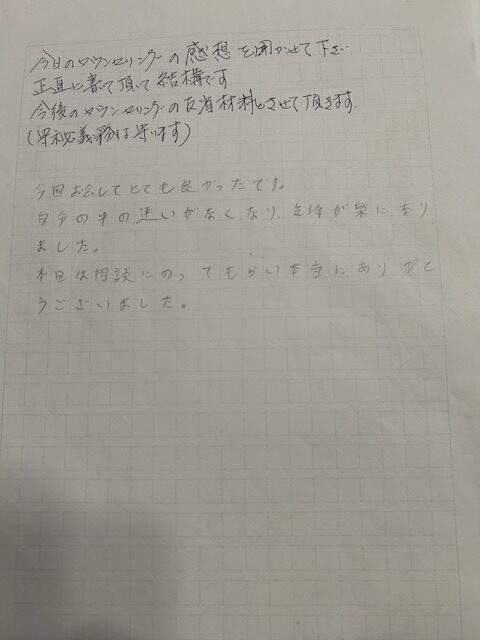 今日のカウンセリングの感想を聞かせて下さい
正直に書いて頂いて結構です
今後のカウンセリングの反省材料とさせて頂きます.
(守秘義務は守ります)
今回お会してとても良かったです。
自分の中の迷いがなくなり、気持が楽になり
ました。
本日は相談にのってもらい本当にありがと
うございました。